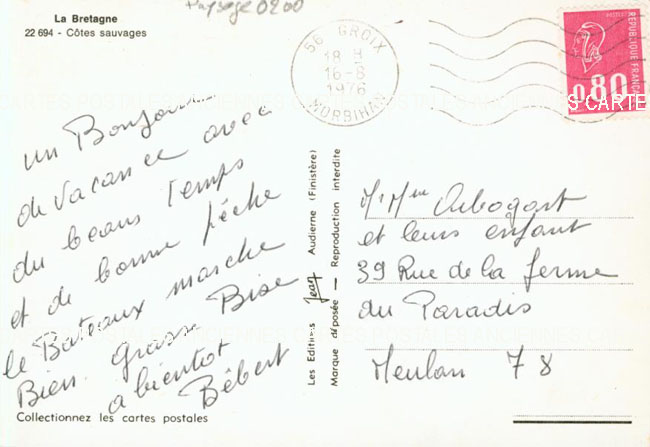 Paysage 0200
La Bretagne
22 694 - Côtes sauvages
56 GROIX
18 H
16-8
1976
MORBIHAN
REPUBLIQUE FRANCAISE
0,80
CARTES POSTALES ANCIENNES CARTES POSTALES ANCIENNES CARTE
un Bonjour
de vacance avec
du beaus Temps
et de bonne pêche
le Bateaux marche
Bien. Grosse Bise
a bientot
Bébert
Collectionnez les cartes postales
Les Editions Jean Audierne (Finistère)
Marque déposée — Reproduction interdite
M. Mme Arbogast
et leurs enfant
39 Rue de la ferme
du Paradis
Meulan 78